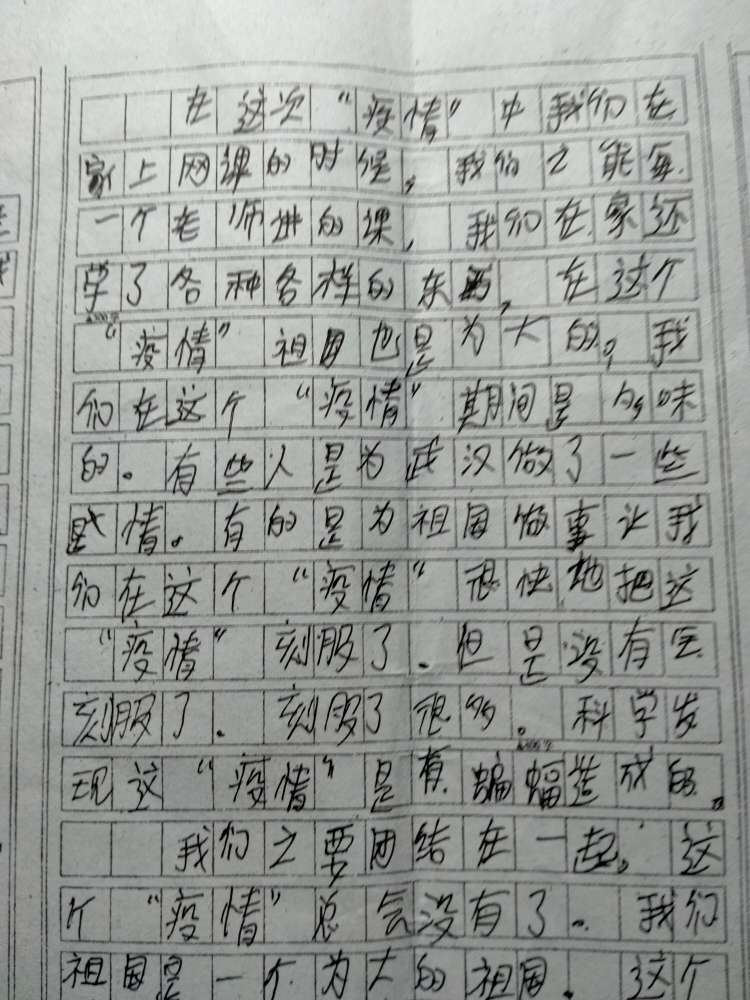 在这次“疫情”中我们在
家上网课的时侯，我们之能每
一个老师讲的课，我们在家还
学了各种各样的东西，在这个
“疫情”祖国也是为大的。我
们在这个“疫情”期间是多味
的。有些人是为武汉做了一些
事情。有的是为祖国做事让我
们在这个“疫情”很快地把这
“疫情”刻服了.但是没有全
刻服了.刻服了很多。科学发
现这“疫情”是有蝙蝠造成的。
我们之要团结在一起。这
个“疫情”总会没有了。我们
祖国是一个为大的祖国.这个